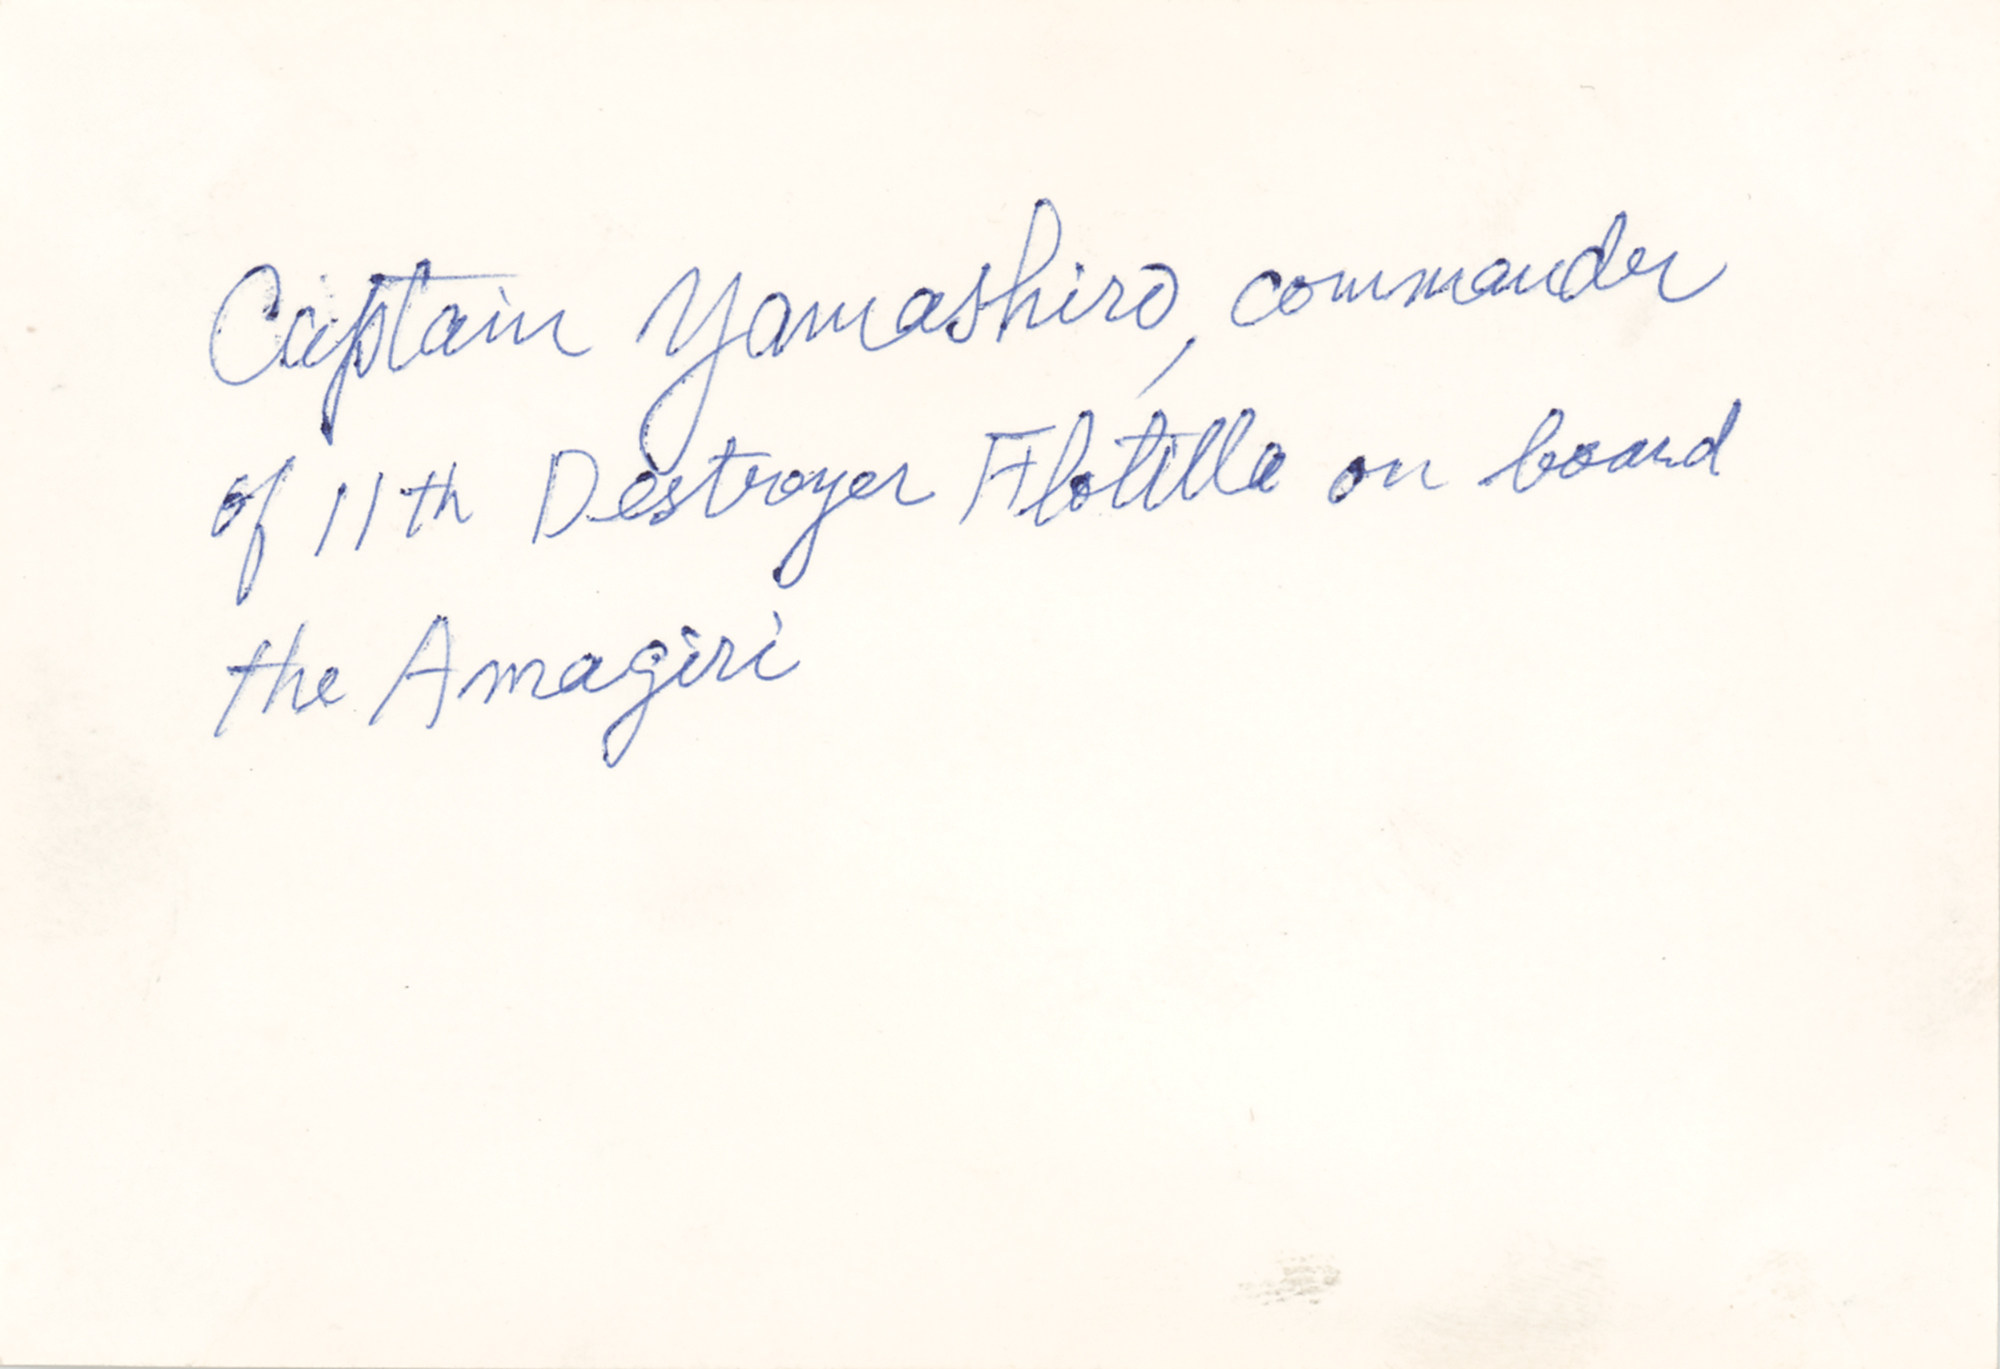 Captain Yamashiro, commander
of 11th Destroyer Flotilla on board
the Amagiri